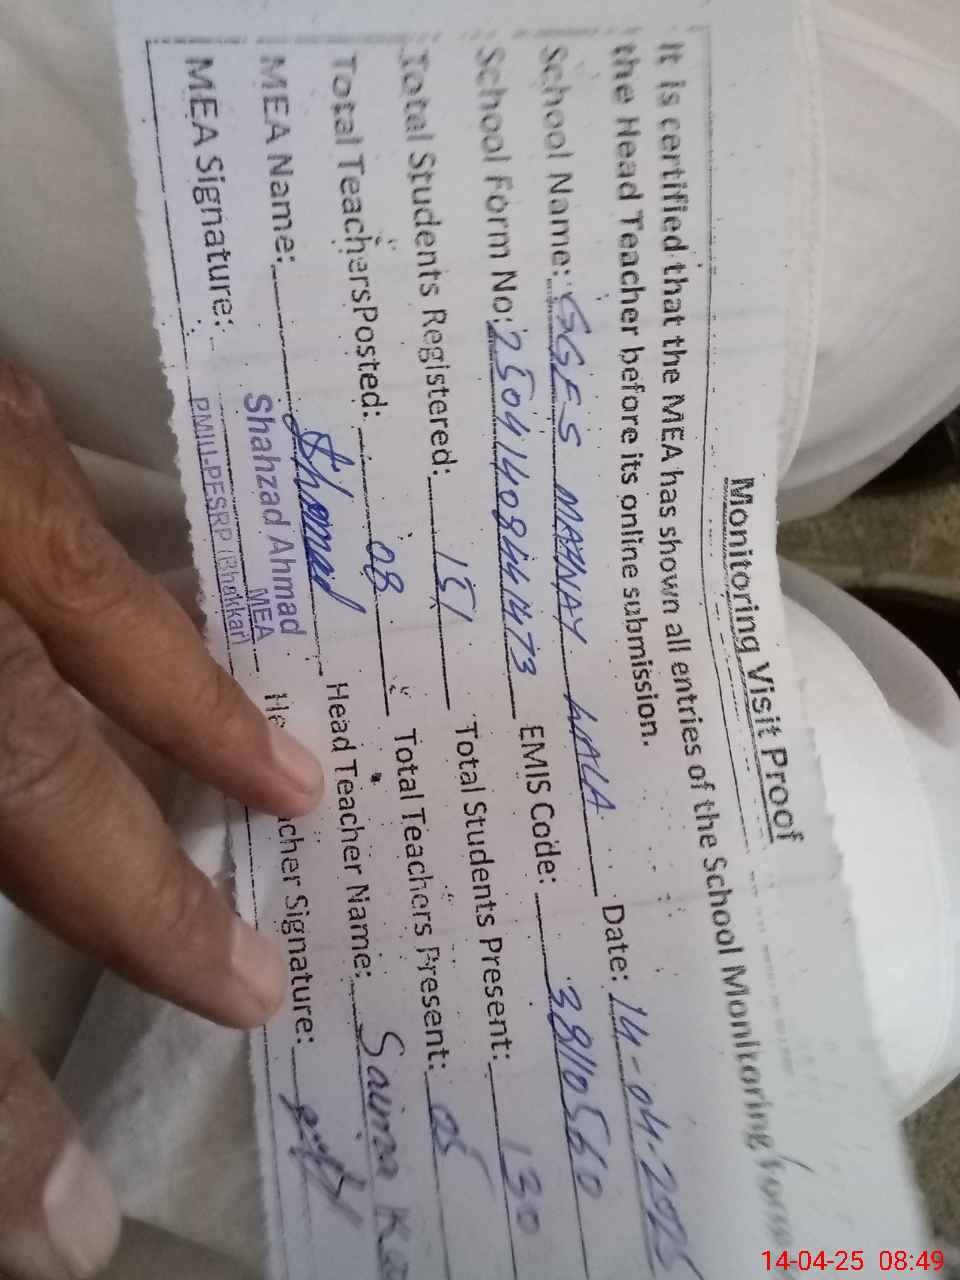 Monitoring Visit Proof
It is certified that the MEA has shown all entries of the School Monitoring Form
the Head Teacher before its online submission.
School Name: GGES MAHNAY WALA Date: 14-04-2025
School Form No: 25041408444473 EMIS Code: 38110560
Total Students Registered: 151 Total Students Present: 130
Total Teachers Posted: 08 Total Teachers Present: 05
MEA Name: Head Teacher Name: Saima
Shahzad Ahmad
MEA
MEA Signature: PMIU-PESRP (Bhakkar) He acher Signature:
14-04-25 08:49